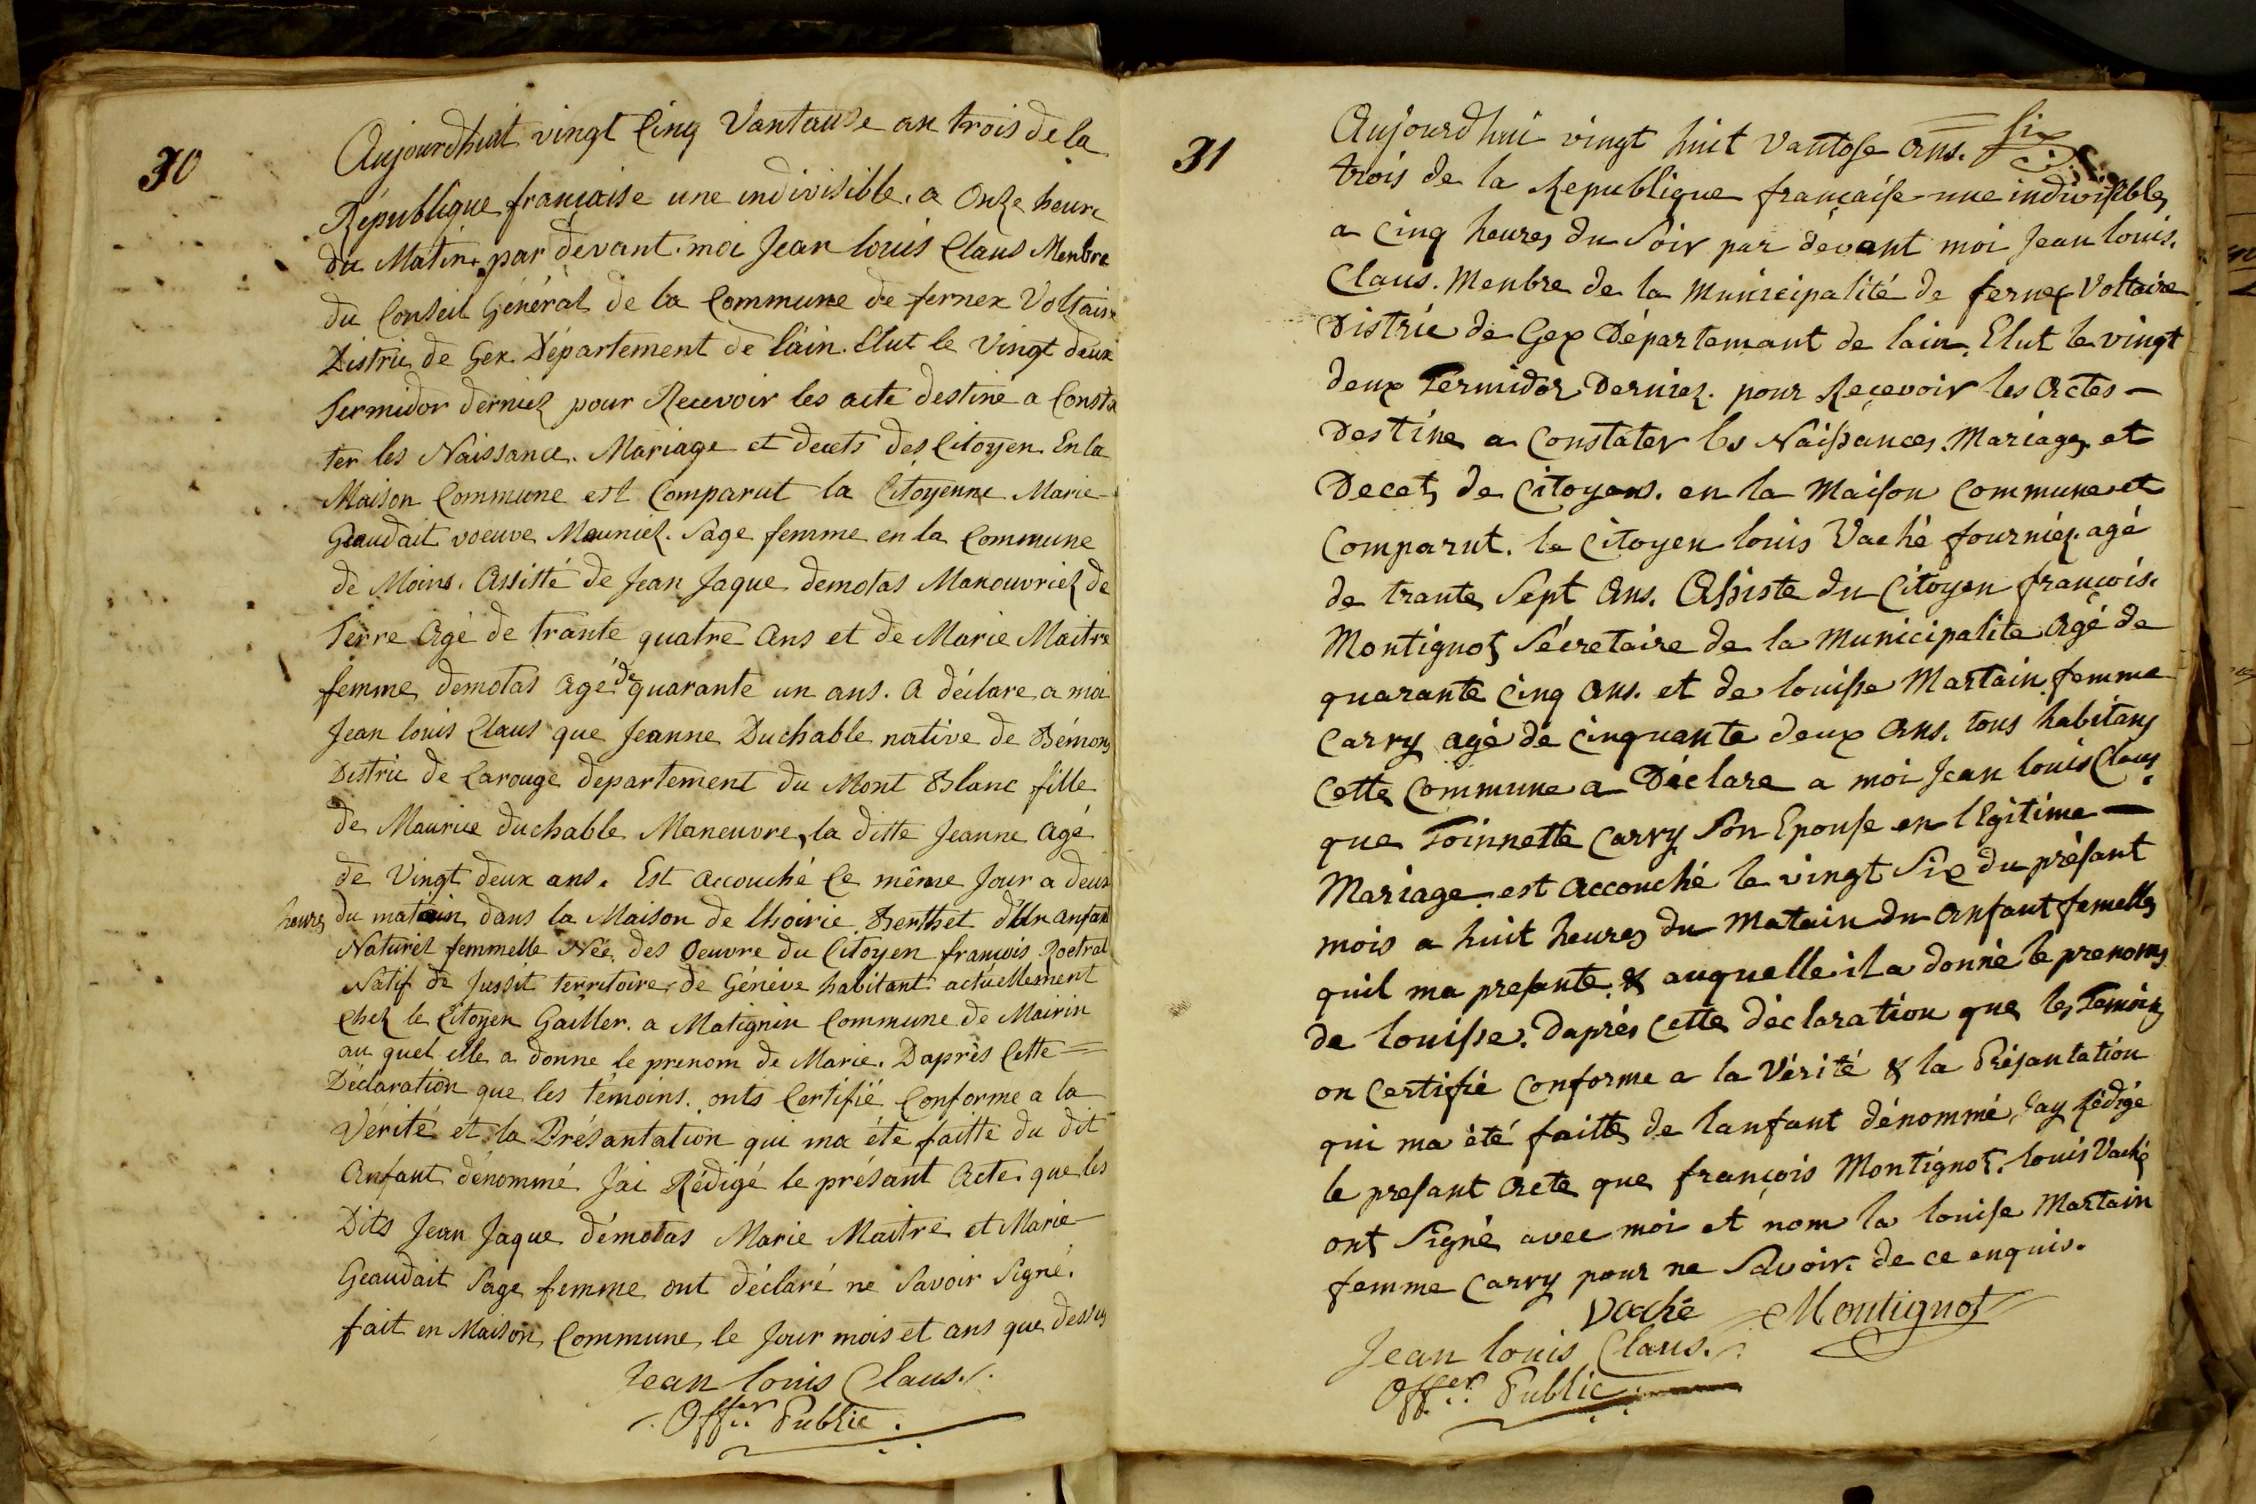 30
Aujourdhuit vingt Cinq Vantause an trois de la
République française une indivisible. a Onze heure
du Matin. par devant. moi Jean louis Claus Menbre
du Conseil Général de la Commune de fernex Voltaire
Distric de Gex. Département de lain. Elut le Vingt deux
Termidor derniez pour Recevoir les acte destiné a Consta
ter les Naissance. Mariage et decets des Citoyen. En la
Maison Commune est Comparut la Citoyenne Marie
Geaudait voeuve Mauniez. Sage femme en la Commune
de Moins. Assitté de Jean Jaque demotas Manouvriez de
Terre Agé de trante quatre Ans et de Marie Maitre
femme demotas Agé de quarante un ans. A déclare a moi
Jean louis Claus que Jeanne Duchable native de Bémon
Distric de Carouge departement du Mont Blanc fille
de Maurice duchable Maneuvre, la ditte Jeanne Agé
de Vingt deux ans. Est accouché Ce même Jour a deux
heures du matain dans la Maison de lhoirie Berthet d'Un anfant
Naturel femmelle Née des Oeuvre du Citoyen françois Roetral
Natif de Jussit territoire de Génève habitant actuellement
Chez le Citoyen Gailler. a Matignin Commune de Mairin
au quel elle a donne le prenom de Marie. Daprès Cette
Déclaration que les témoins. onts Certifié Conforme a la
Vérité et la Présantation qui ma éte faitte du dit
Anfant dénommé Jai Rédigé le présant Acte. que les
Dits Jean Jaque démotas Marie Maitre et Marie
Geaudait Sage femme ont déclaré ne Savoir Signé.
fait en Maison Commune le Jour mois et ans que dessus
Jean louis Claus.
Offer Public.
31
Six
Aujourdhui vingt huit Vantose ans.
trois de la Republique française une indivisible
a Cinq heures du Soir par devant moi Jean louis.
Claus. Menbre de la Municipalité de fernex Voltaire
Distric de Gex Départemant de lain. Elut le vingt
deux Termidor Derniez. pour Reçevoir les Actes
Destine a Constater les Naissances. Mariages et
Decets de Citoyens. en la Maison Commune et
Comparut. le Citoyen louis Vaché fourniez. agé
de trante Sept Ans. Assiste du Citoyen françois.
Montignot Sécretaire de la Municipalite Agé de
quarante Cinq Ans. et de louisse Martain femme
Carry agé de Cinquante deux Ans. tous habitans
Cette Commune a Déclare a moi Jean louis Claus
que Toinnette Carry Son Epouse en lEgitime
Mariage est Accouché le vingt Six du présant
mois a huit heures du Matain du Anfant femelle
quil ma presante & auquelle il a donné le prenoms
de louisse. Daprès Cette déclaration que les Temoins
on Certifié Conforme a la Vérité & la Présantation
qui ma été faitte de lanfant dénommé. Jay Rédigé
le presant Acte que françois Montignot. louis Vaché
ont Signé avec moi et nom la louise Martain
femme Carry pour ne Savoir. de ce enquis.
Vache Montignot
Jean louis Claus.
Offer Public.